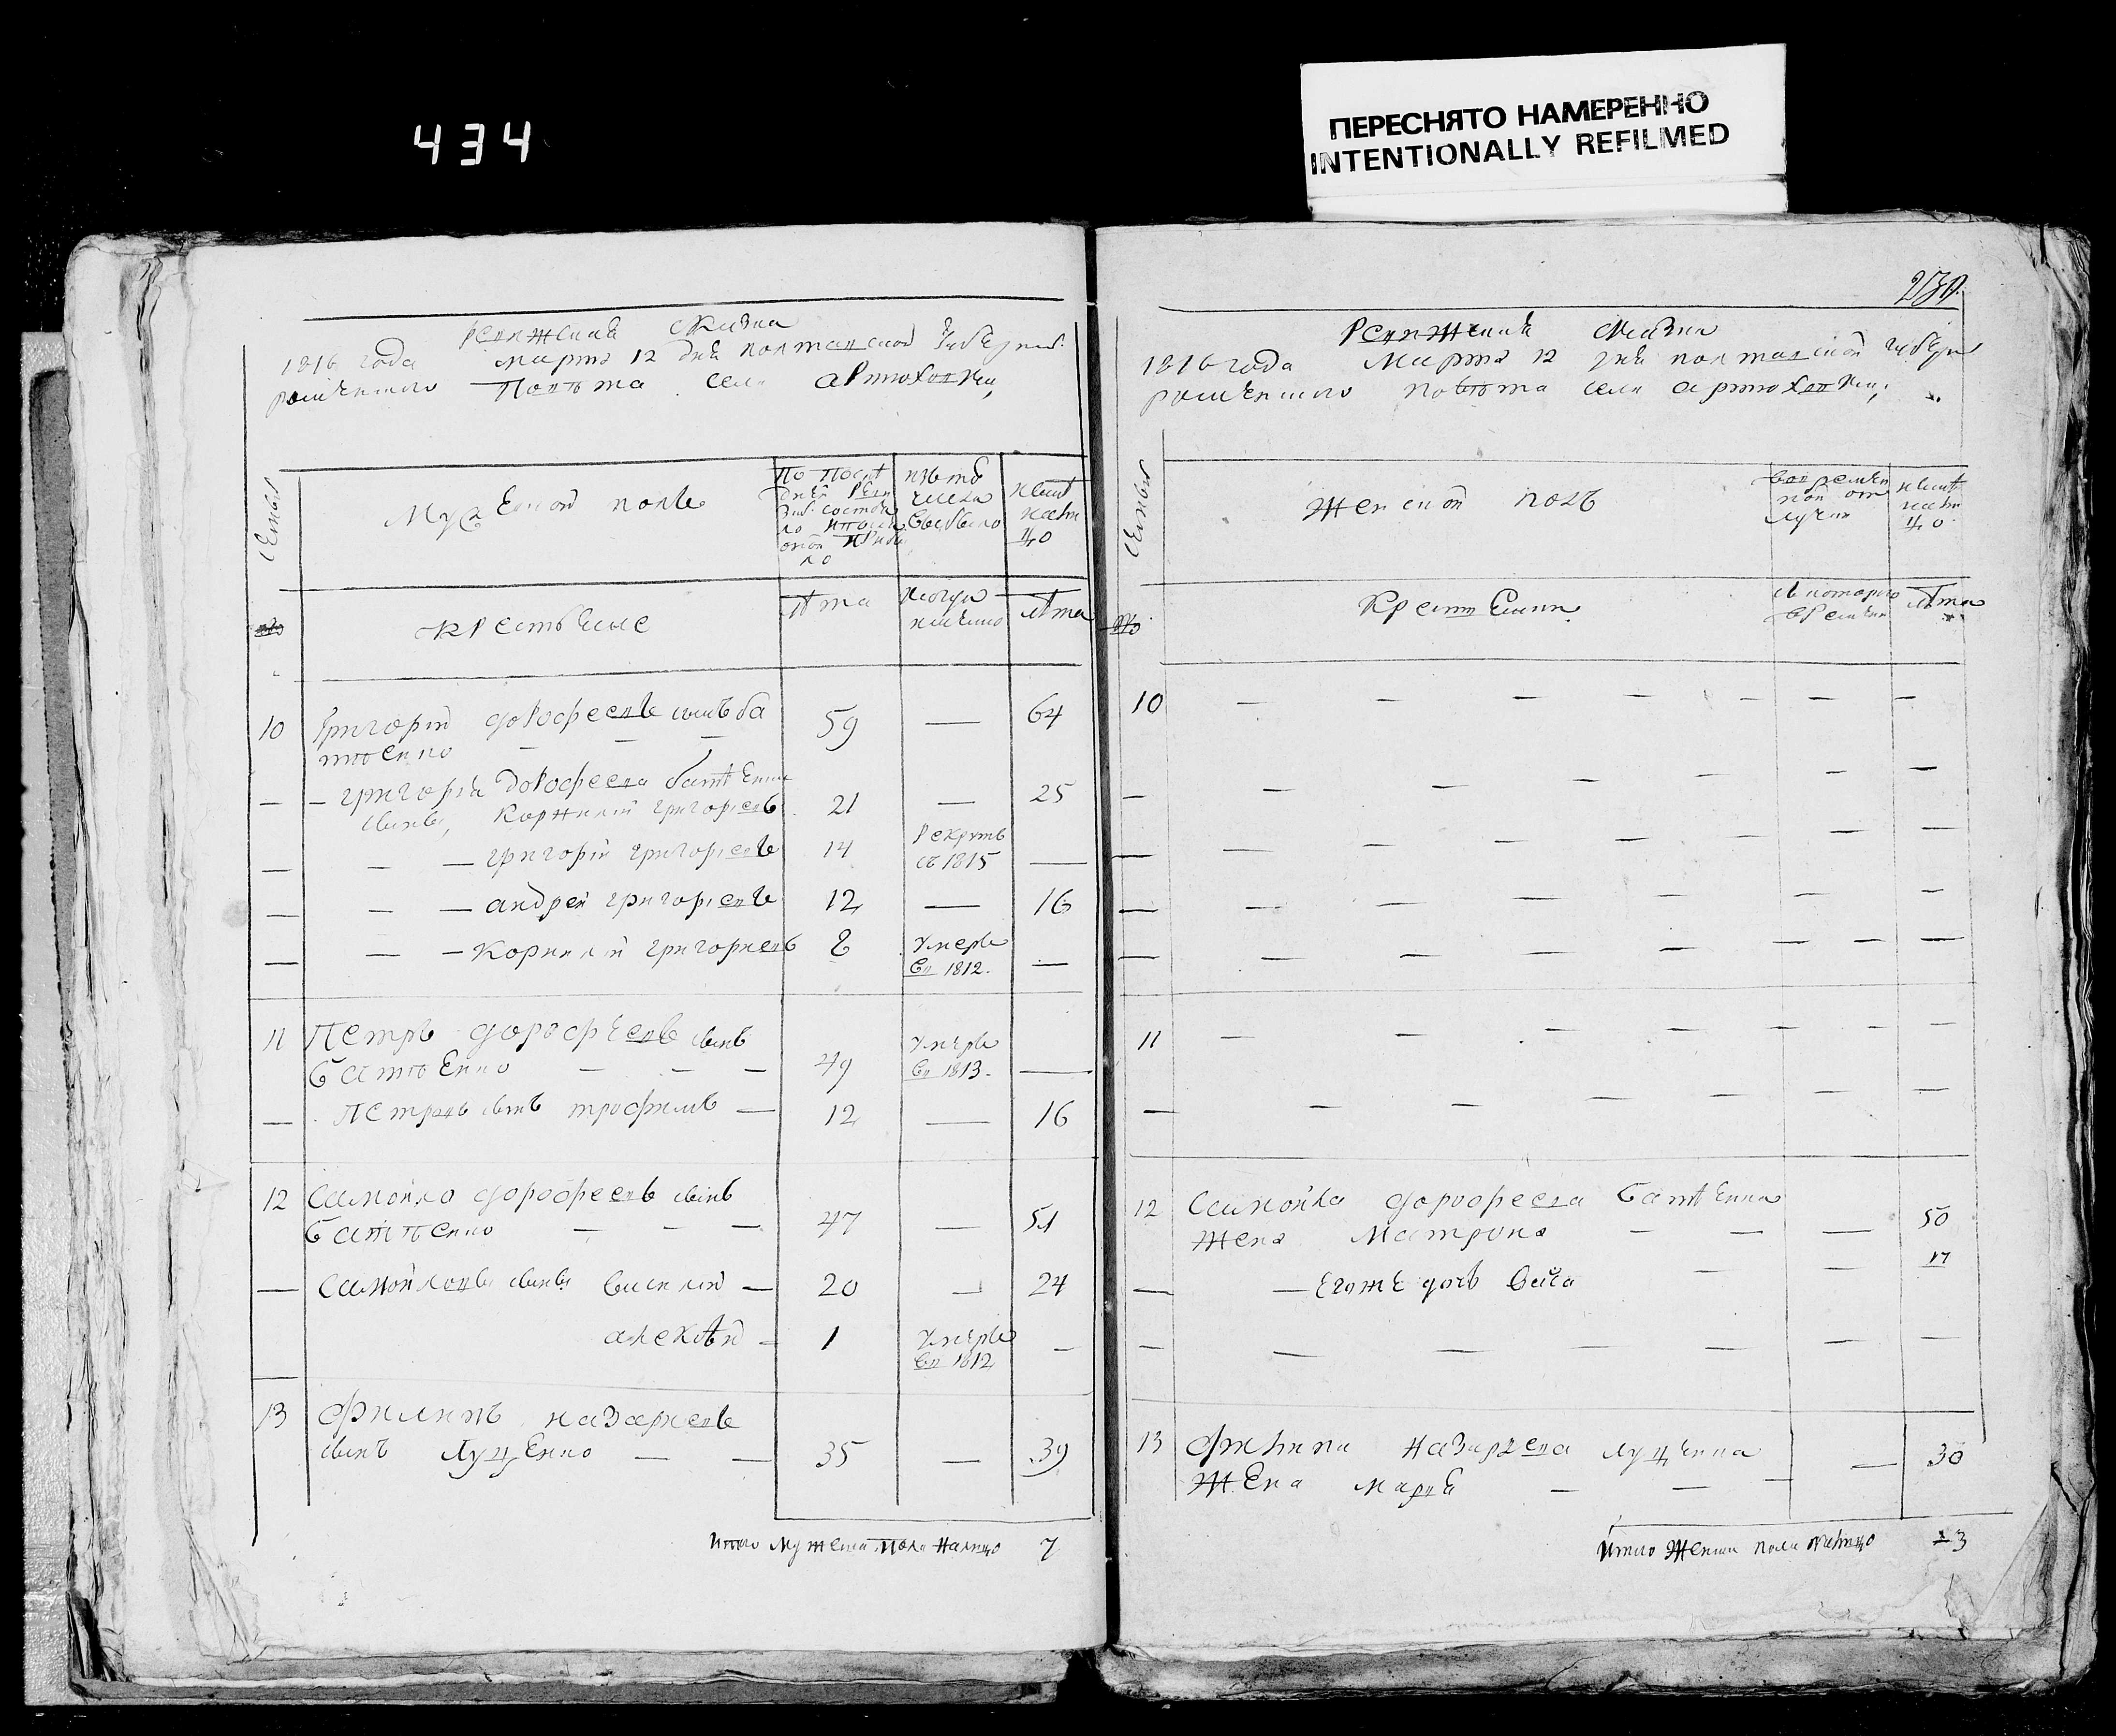 434
ПЕРЕСНЯТО НАМЕРЕННО
INTENTIONALLY REFILMED
Ревижская сказка
1816 года марта 12 дня полтавской губернии
роменского Повѣта села артюховки,
Семьи
Мужеской полъ
По послѣ
дней Реви
зіи состоя
ло и после
оной прибы
ло
изъ тѣ
числа
выбыло
нынѣ
нали
цо
крестьяне
Лѣта
когда
именно
лѣта
10 Григорій дорофеевъ сынъ ба
ттенко — — — 59 — 64
— — григорія дорофеева батѣенка
сынъ, Корнилій григорьевъ 21 — 25
— — — григорій григорьевъ 14 Рекрутъ
съ 1815 —
— — — андрей григорьевъ 12 — 16
— — — Корнилій григорьевъ 8 умеръ
въ 1812. —
11 Петръ дорофеевъ сынъ
батѣенко — — — 49 умеръ
въ 1813. —
— Петровъ сынъ трофимъ — 12 — 16
12 Самойло дорофеевъ сынъ
батѣенко — — — 47 — 51
— Самойловы сыны василий — 20 — 24
алексѣй — 1 умеръ
въ 1812 —
13 филипъ назарьевъ
сынъ Луценко — — 35 — 39
Итого мужеска пола налицо 7
230.
Ревижская сказка
1816 года марта 12 дня полтавской губерни
роменского повѣта села артюховки,
Семьи
Женской полъ
во времен
ной от
лучки
нынѣ
нали
цо
Крестьянки
съ которого
времени
лѣта
10 — — — — — — —
— — — — — —
— — — — — — —
— — — — — — —
— — — — — — —
11 — — — — — — —
— — — — — — —
12 Самойла дорофеева батѣенка
жена Матрона — — — 50
— — Егожъ дочь — — 17
— — — — — — —
13 филипа назарьева луценка
жена марія — — — 30
Итого женска пола налицо 3